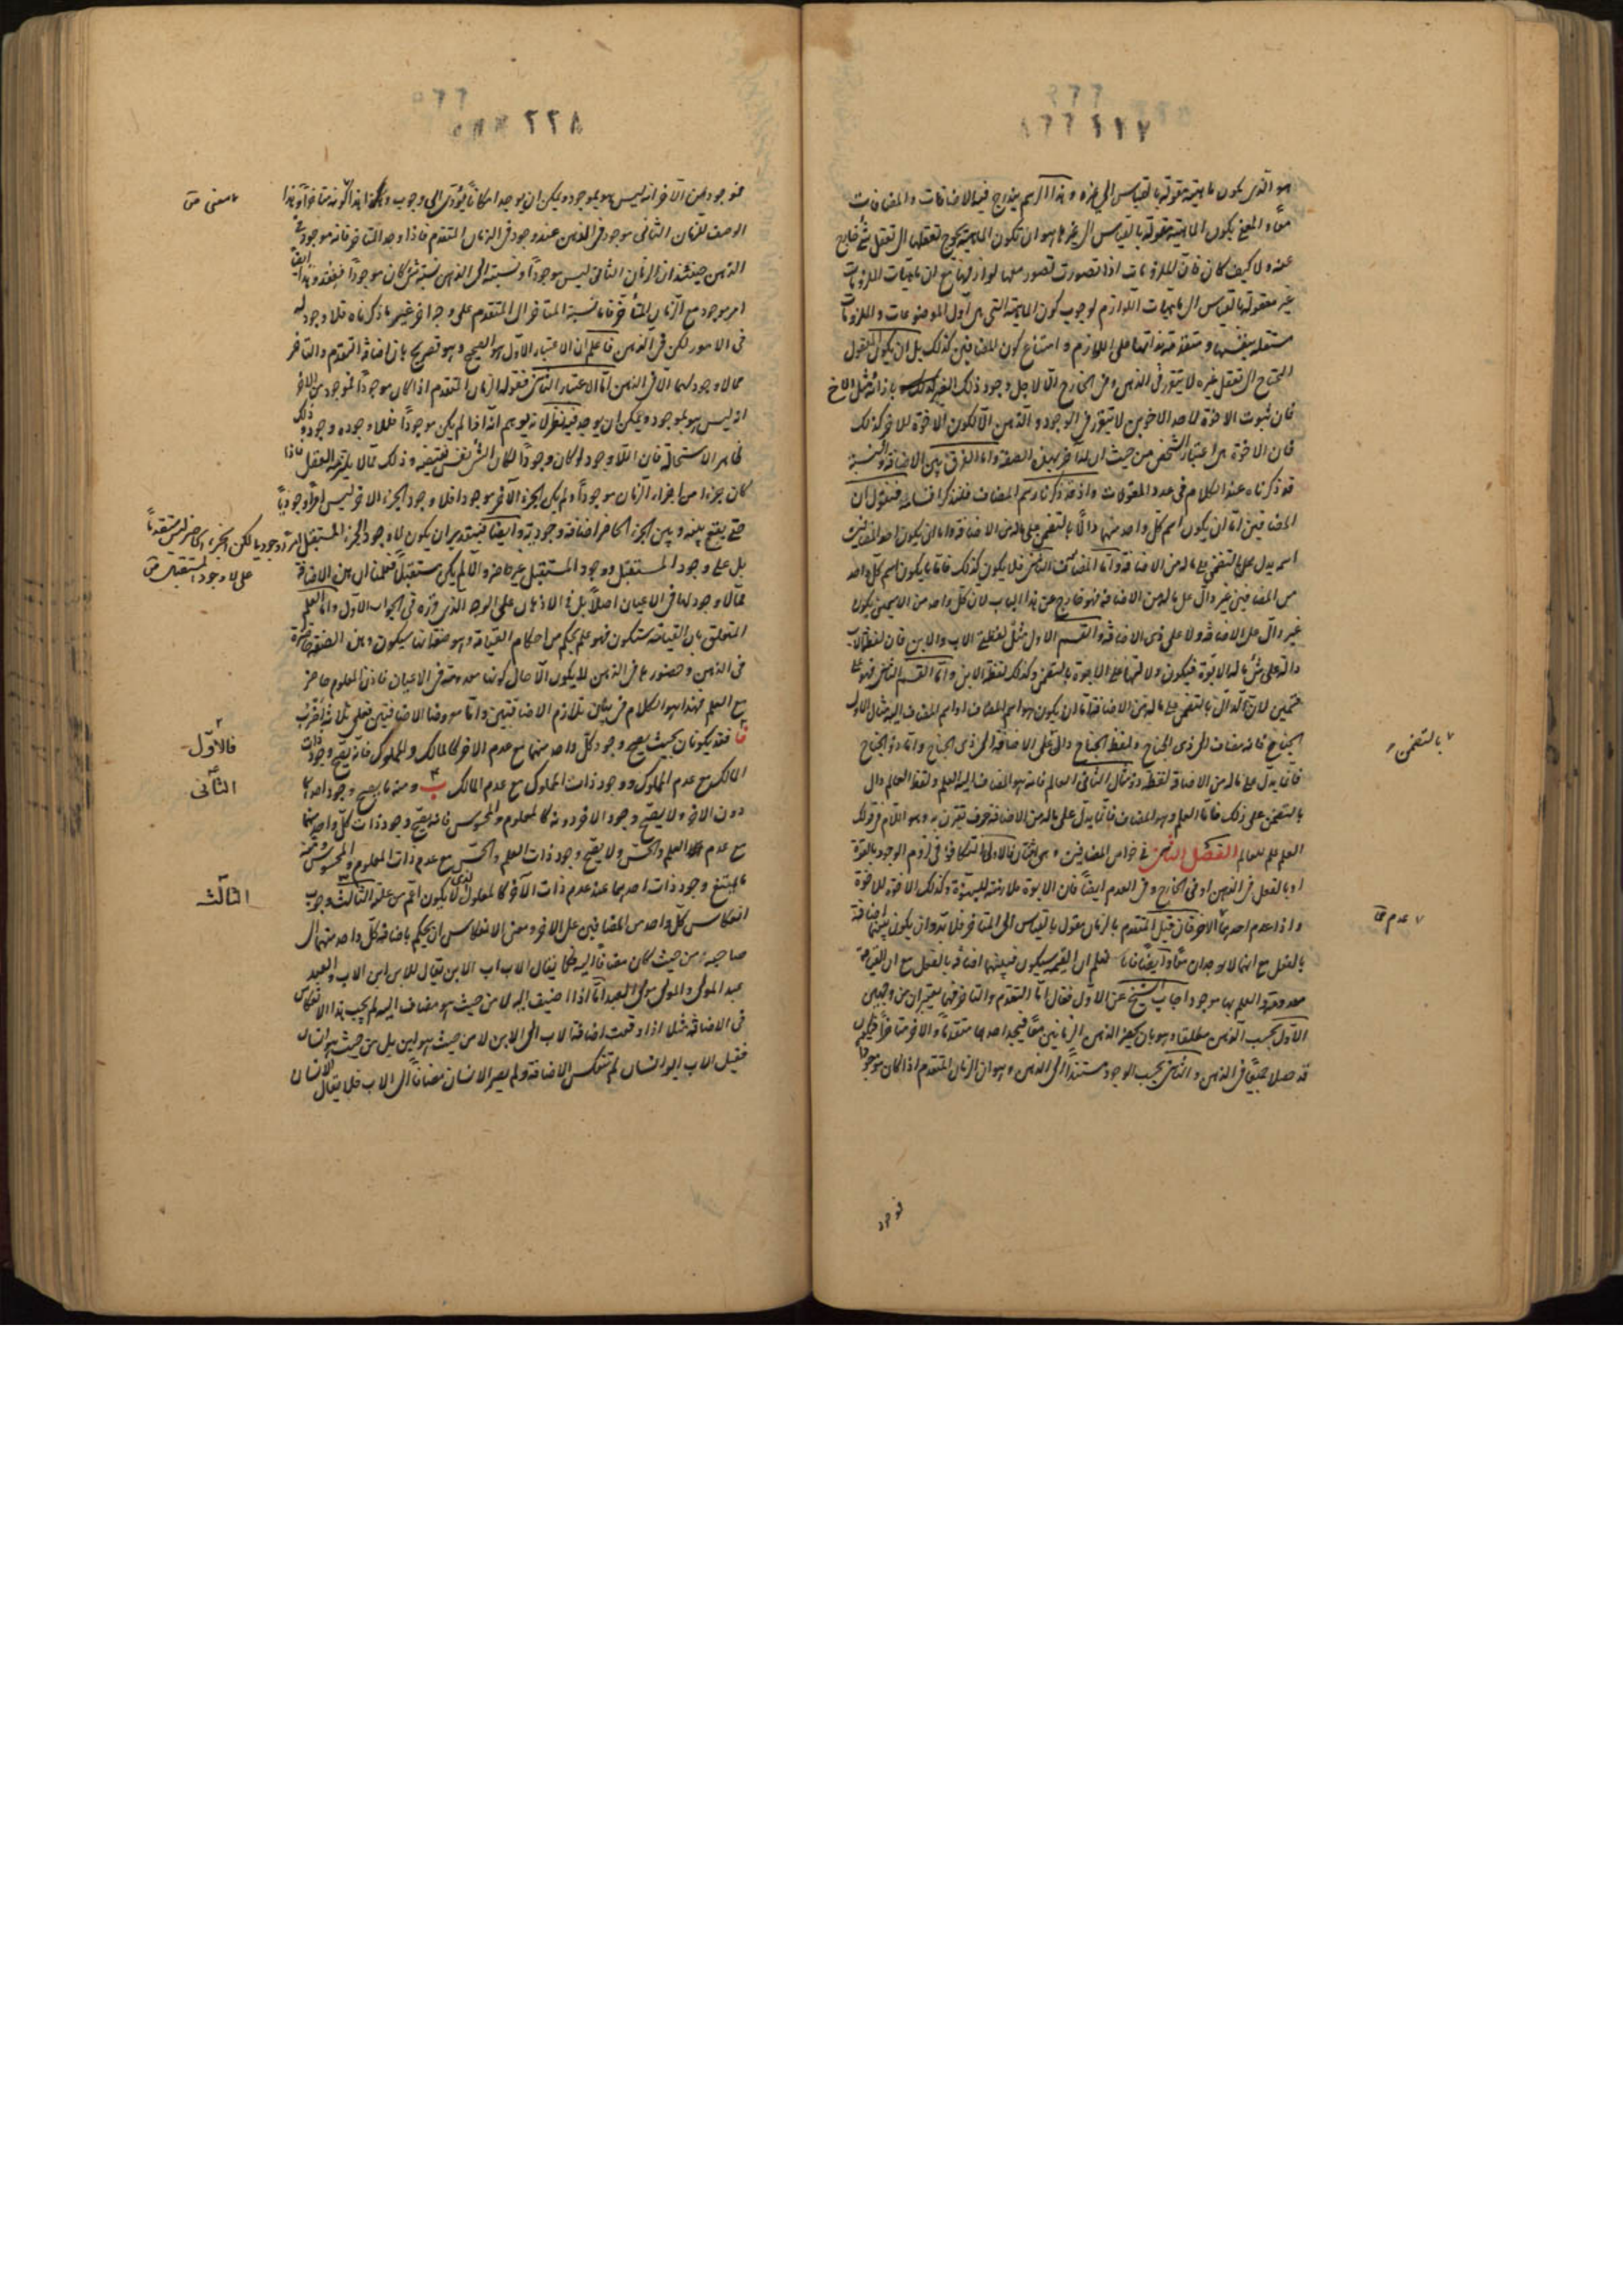 هو الذی یکون ماهیته مقولة بالقیاس الی غیره وهذا الرسم یندرج فیه الاضافات والمضافات
معا و المعنی بکون الماهیة مقولة بالقیاس الی غیرها هو ان تکون الماهیة یحوج تعقلها الی تعقل شئ خارج
عنه ولا کیف کان فان الملزومات اذا تصورت تصور معها لوازمها مع ان ماهیات الملزومات
غیر معقولة بالقیاس الی ماهیات اللوازم لوجوب کون الماهیة التی هی اول الموضوعات و الملزومات
مستقلة بنفسها و متقدمة بذاتها علی اللوازم و امتناع کون المضافین کذلک بل ان یکون المعقول
المحتاج الی تعقل غیره لا یتقرر فی الذهن و فی الخارج الا لاجل وجود ذلک الغیر بازائه مثل الاخ
فان ثبوت الاخوة لاحد الاخوین لا یتقرر فی الوجود و الذهن الا بکون الاخوة للاخر کذلک
فان الاخوة هی اعتبار الشخص من حیث ان له آخر بهذه الصفة واما الفرق بین الاضافة والنسبة
قد ذکرناه عند الکلام فی عدد المقولات واذ قد ذکرنا رسم المضاف فلنذکر اقسامه فنقول ان
المضافین اما ان یکون اسم کل واحد منهما دالا بالتضمن علی ماله من الاضافة واما ان یکون احد المضافین
اسم یدل علی بالتضمن علی ماله من الاضافة واما المضاف الثانی فلا یکون کذلک فاما ما یکون اسم کل واحد
من المضافین غیر دال علی ماله من الاضافة فهو خارج عن هذا الباب لان کل واحد من الاسمین یکون
غیر دال علی الاضافة ولا علی ذی الاضافة والقسم الاول مثل لفظة الاب والابن فان لفظ الاب
دالة علی شئ ماله الابوة فیکون دلالتها علی الابوة بالتضمن وکذلک لفظ الابن واما القسم الثانی فهو علی
قسمین لان الدال بالتضمن علی ماله من الاضافة اما ان یکون هو اسم المضاف او اسم المضاف الیه مثال الاول
الجناح فانه مضاف الی ذی الجناح و لفظ الجناح دال علی الاضافة الی ذی الجناح واما ذو الجناح
فانما یدل علی ماله من الاضافة لفظة ذو مثال الثانی العالم فانه هو المضاف الیه العلم ولفظ العالم دال
بالتضمن علی ذلک فاما العلم وهو المضاف فانما یدل علی ماله من الاضافة حرف تقترن به وهو اللام فی قولک
العلم علم للعالم الفصل الثانی فی خواص المضافین و هی اثنتان فالاولی التکافؤ فی لزوم الوجود بالقوة
او بالفعل فی الذهن او فی الخارج و فی العدم ایضا فان الابوة ملازمة للبنوة وکذلک الاخوة للاخوة
واذا عدم احدهما الاخر فان قیل المتقدم بالزمان مقول بالقیاس الی المتاخر فلا بد وان یکون بینهما اضافة
بالفعل مع انهما لا یوجدان معا وایضا فانا نعلم ان القیمة سیکون فبینهما اضافة بالفعل مع ان القیامة
معدومة والعلم بها موجود اجاب الشیخ عن الاول فقال اما التقدم والتاخر فهما یعتبران من وجهین
الاول بحسب الذهن مطلقا وهو بان یحضر الذهن الزمانین معا فیجد احدهما متقدما والاخر متاخرا فیکون
قد حصلا جمیعا فی الذهن والثانی بحسب الوجود مستندا الی الذهن وهو ان الزمان المتقدم اذا کان موجودا
بالتضمن
عدم
فوجد
٢٢٨
فوجود من الآخر انه لیس هو بموجود ویمکن ان یوجد امکانا یؤدی الی وجوب وهذا کونه متاخرا وهذا
الوصف للزمان الثانی موجود فی الذهن عند وجود فی الزمان المتقدم فاذا وجد المتاخر فانه موجود فی
الذهن حینئذ ان الزمان الثانی لیس موجودا و نسبته الی الذهن نسبة شئ کان موجودا ففقد وهذا ایضا
امر موجود مع الزمان المتاخر فاما نسبة المتاخر الی المتقدم علی وجه آخر غیر ما ذکرناه فلا وجود له
فی الامور لکن فی الذهن فاعلم ان الاعتبار الاول هو الصحیح وهو تصریح بان اضافة التقدم والتاخر
مما لا وجود لهما الا فی الذهن اما الاعتبار الثانی فقوله الزمان المتقدم اذا کان موجودا فموجود من الاخر
انه لیس هو بموجود ویمکن ان یوجد فیه نظر لانه یوهم انه اذا لم یکن موجودا فللا وجوده وجود وذلک
ظاهر الاستحالة فان اللا وجود لو کان وجودا لکان الشئ نفس نقیضه و ذلک مما لا یلتزمه العقل فاذا
کان جزء من اجزاء الزمان موجودا ولم یکن الجزء الاخر موجودا فلا وجود الجزء الاخر لیس امرا وجودیا
حتی یقع بینه و بین الجزء الحاضر اضافة وجودیة وایضا فبتقدیر ان یکون للا وجود الجزء المستقبل امرا وجودیا لکن الجزء الحاضر لیس متقدما
بل علی وجود المستقبل ووجود المستقبل غیر حاضر والا لم یکن مستقبلا فعلمنا ان هذه الاضافة
مما لا وجود لها فی الاعیان اصلا بل فی الاذهان علی الوجه الذی قرره فی الجواب الاول واما العلم
المتعلق بان القیامة ستکون فهو علم بحکم من احکام القیامة وهو صفة انها سیکون و هذه الصفة حاضرة
فی الذهن و حضورها فی الذهن لا یکون الا حال کونها معدومة فی الاعیان فاذن المعلوم حاضر
مع العلم فهذا هو الکلام فی بیان تلازم الاضافتین واما معروضا الاضافتین فعلی ثلاثة اضرب
فقد یکونان بحیث یصح وجود کل واحد منهما مع عدم الاخر کالمالک والمملوک فانه یصح وجود ذات
المالک مع عدم المملوک ووجود ذات المملوک مع عدم المالک ب ومنه ما یصح وجود احدهما
دون الاخر ولا یصح وجود الاخر دونه کالمعلوم والمحسوس فانه یصح وجود ذات کل واحد منهما
مع عدم العلم والحس ولا یصح وجود ذات العلم والحس مع عدم ذات المعلوم والمحسوس ومنه
ما یمتنع وجود ذات احدهما عند عدم ذات الآخر کالمعلول الذی لا یکون اعم من علته الثالث وجوب
انعکاس کل واحد من المضافین علی الاخر ومعنی الانعکاس ان یحکم باضافة کل واحد منهما الی
صاحبه من حیث کان مضافا الیه فکما یقال الاب اب الابن یقال للابن ابن الاب والعبد
عبد المولی والمولی مولی العبد اما اذا اضیف الیه لا من حیث هو مضاف الیه لم یجب هذا الانعکاس
فی الاضافة مثلا اذا وقعت اضافة الاب الی الابن لا من حیث هو ابن بل من حیث هو انسان
فقیل الاب ابو انسان لم تنعکس الاضافة ولم یصر الانسان مضافا الی الاب فلا یقال الانسان
علی لا وجود المستقبل
فالاول
الثانی
الثالث